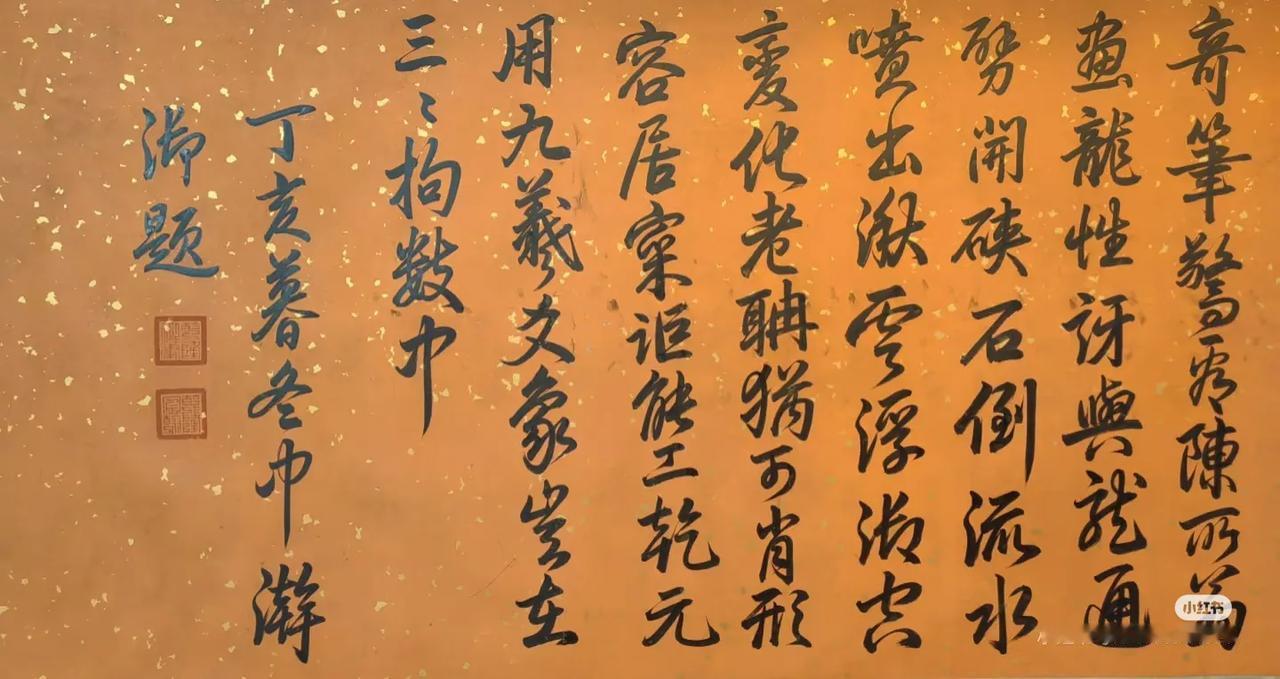 奇筆驚看陳所翁
畫龍性訝與龍通
劈開硤石倒流水
噴出湫雲浮空
變化老聃猶可肖形
容居寀詎能工乾元
用九羲爻象豈在
三〻拘數中
丁亥暮冬中澣
御題
小红书